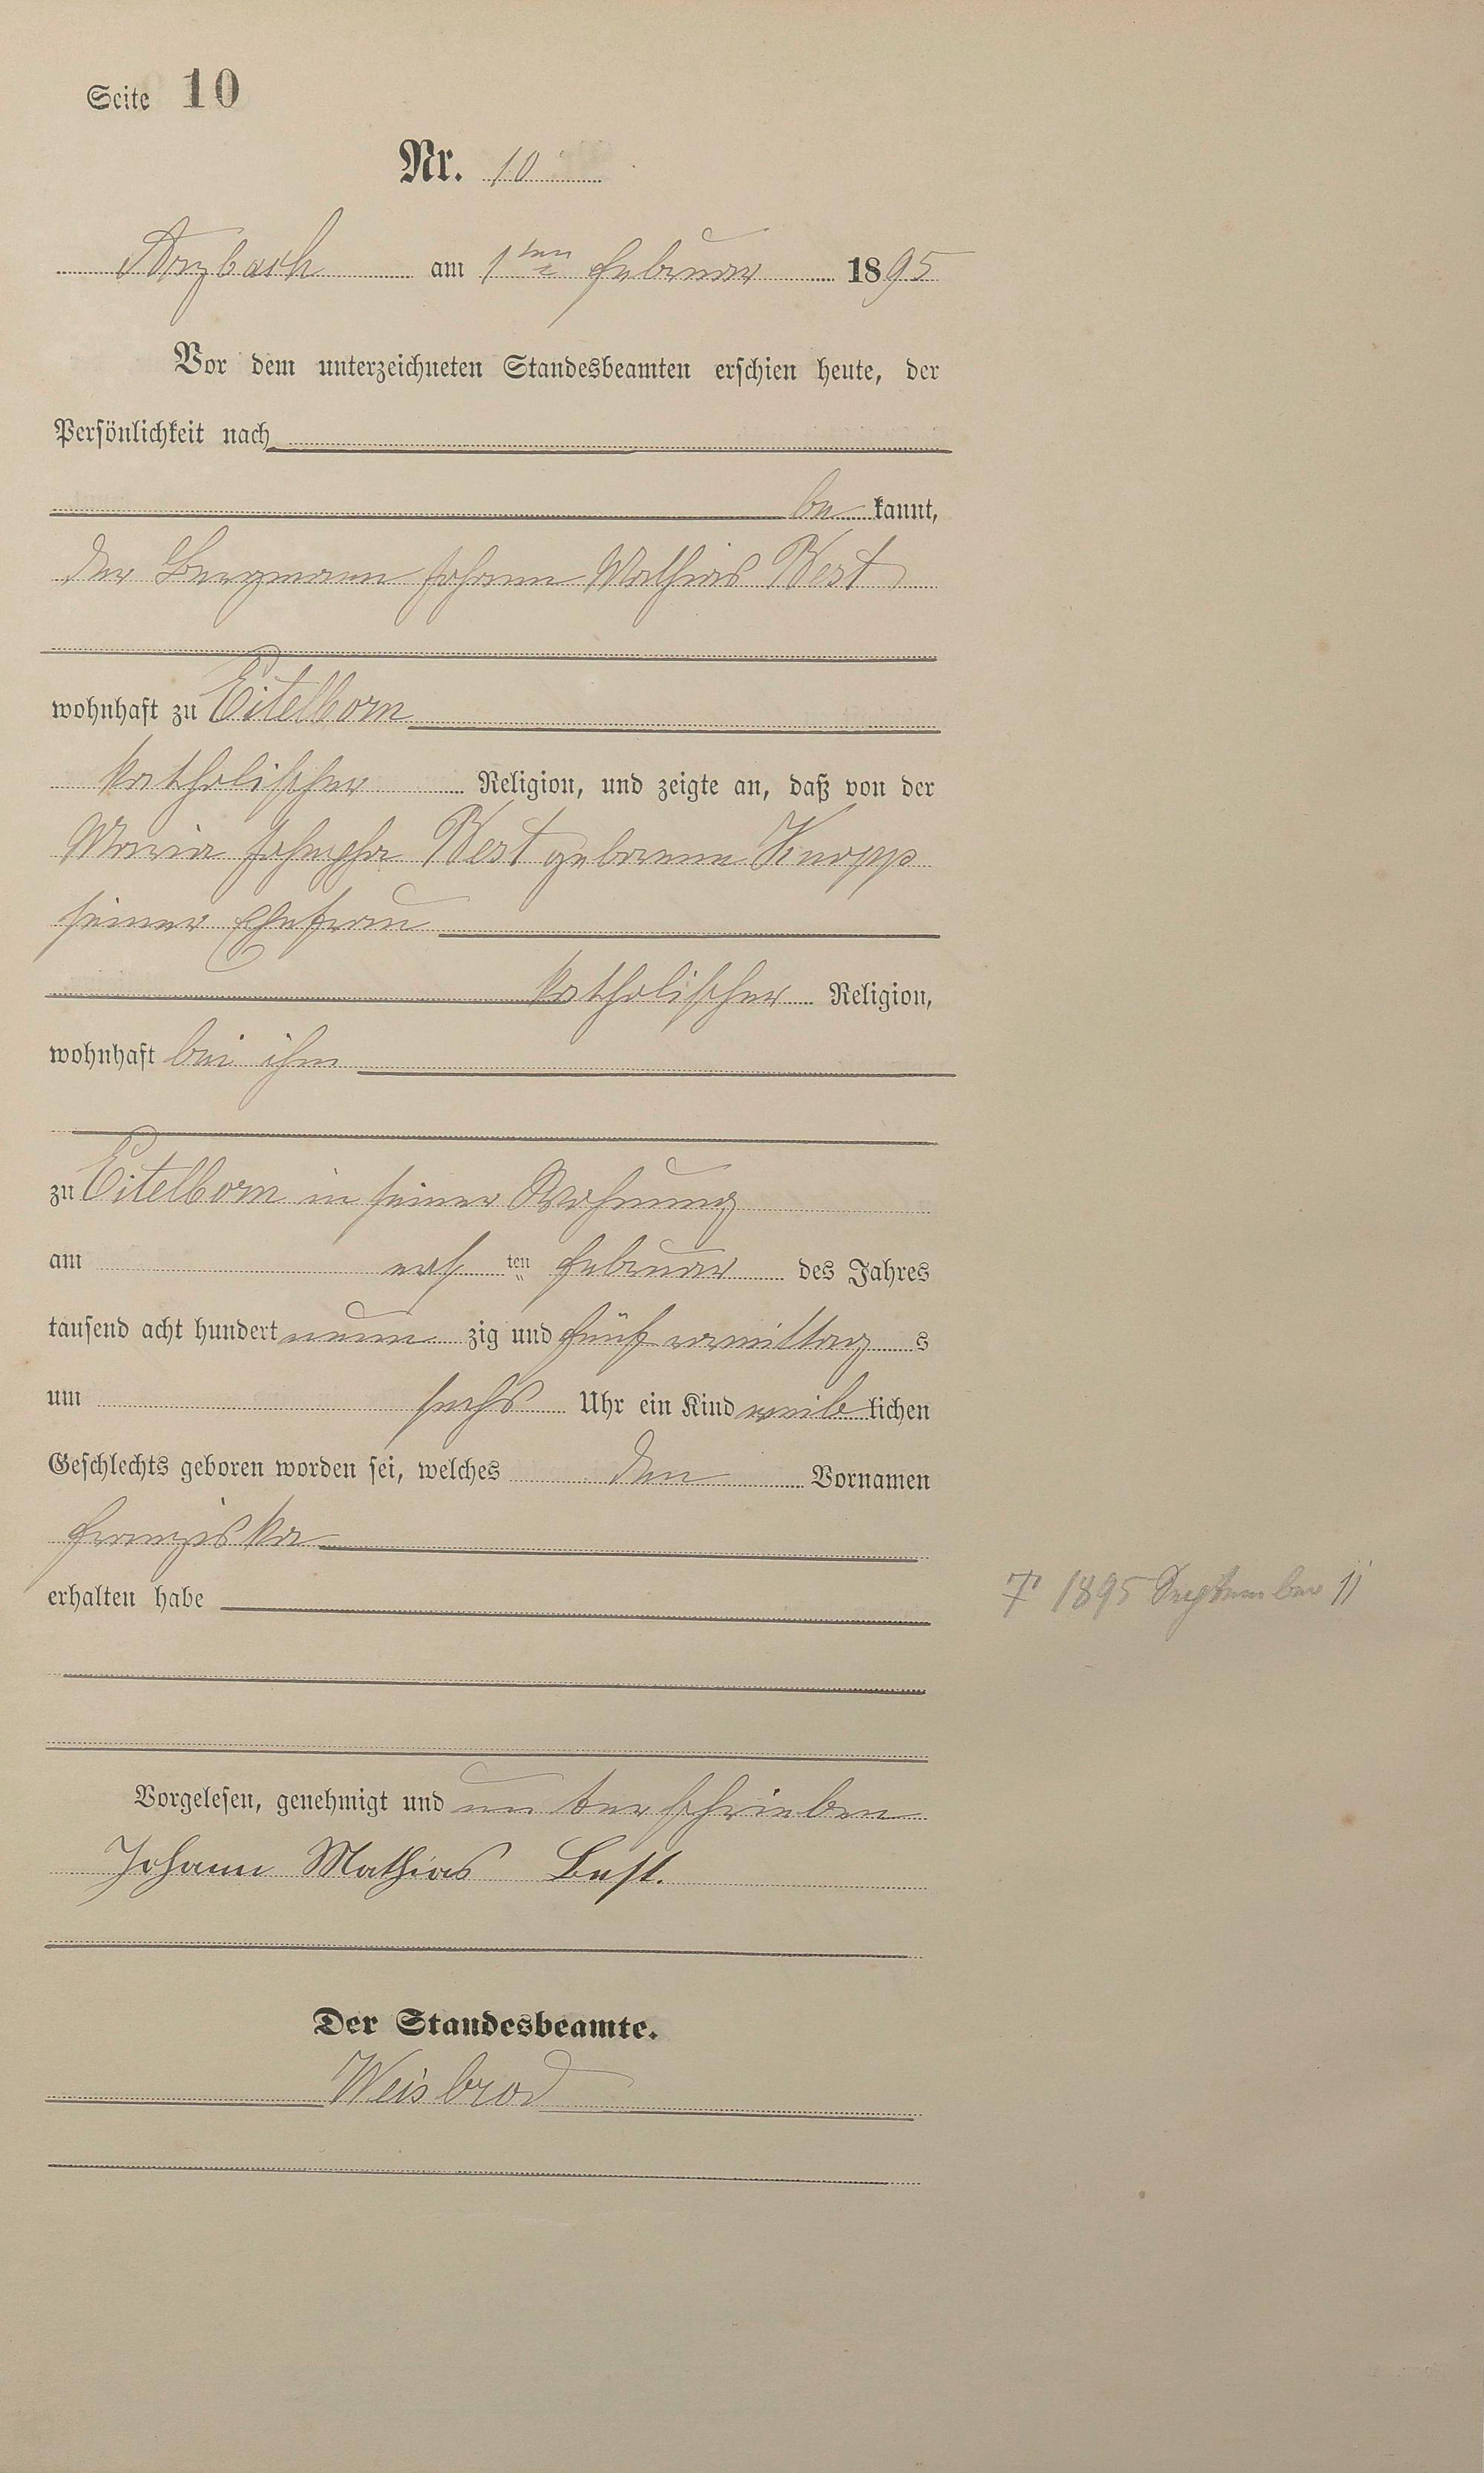 Seite 10
Nr. 10
Arzbach am 1ten Februar 1895
Vor dem unterzeichneten Standesbeamten erschien heute, der
Persönlichkeit nach
be kannt,
der Bergmann Johann Mathias Best
wohnhaft zu Eitelborn
katholischer Religion, und zeigte an, daß von der
Maria Josepha Best geborene Knopp
seiner Ehefrau
katholischer Religion,
wohnhaft bei ihm
zu Eitelborn in seiner Wohnung
am ersten Februar des Jahres
tausend acht hundert neun zig und fünf vormittag s
um sechs Uhr ein Kind weib lichen
Geschlechts geboren worden sei, welches den Vornamen
Franziska
erhalten habe
† 1895 September 11
Vorgelesen, genehmigt und unterschrieben
Johann Mathias Best.
Der Standesbeamte.
Weisbrod